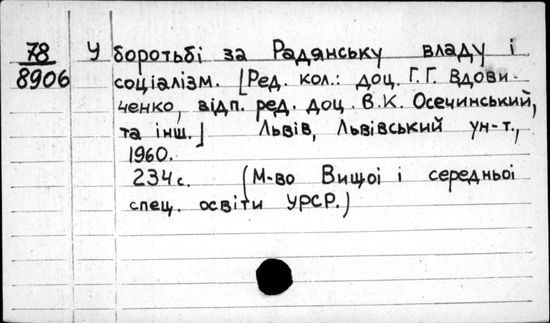 78
8906
У боротьбі за Радянську владу і
соціалізм. [Ред. кол.: доц. Г.Г. Вдови-
ченко, відп. ред. доц. В.К. Осечинський,
та інш.] Львів, Львівський ун-т.,
1960.
234 с. (М-во Вищоі і середньоі
спец. освіти УРСР.)